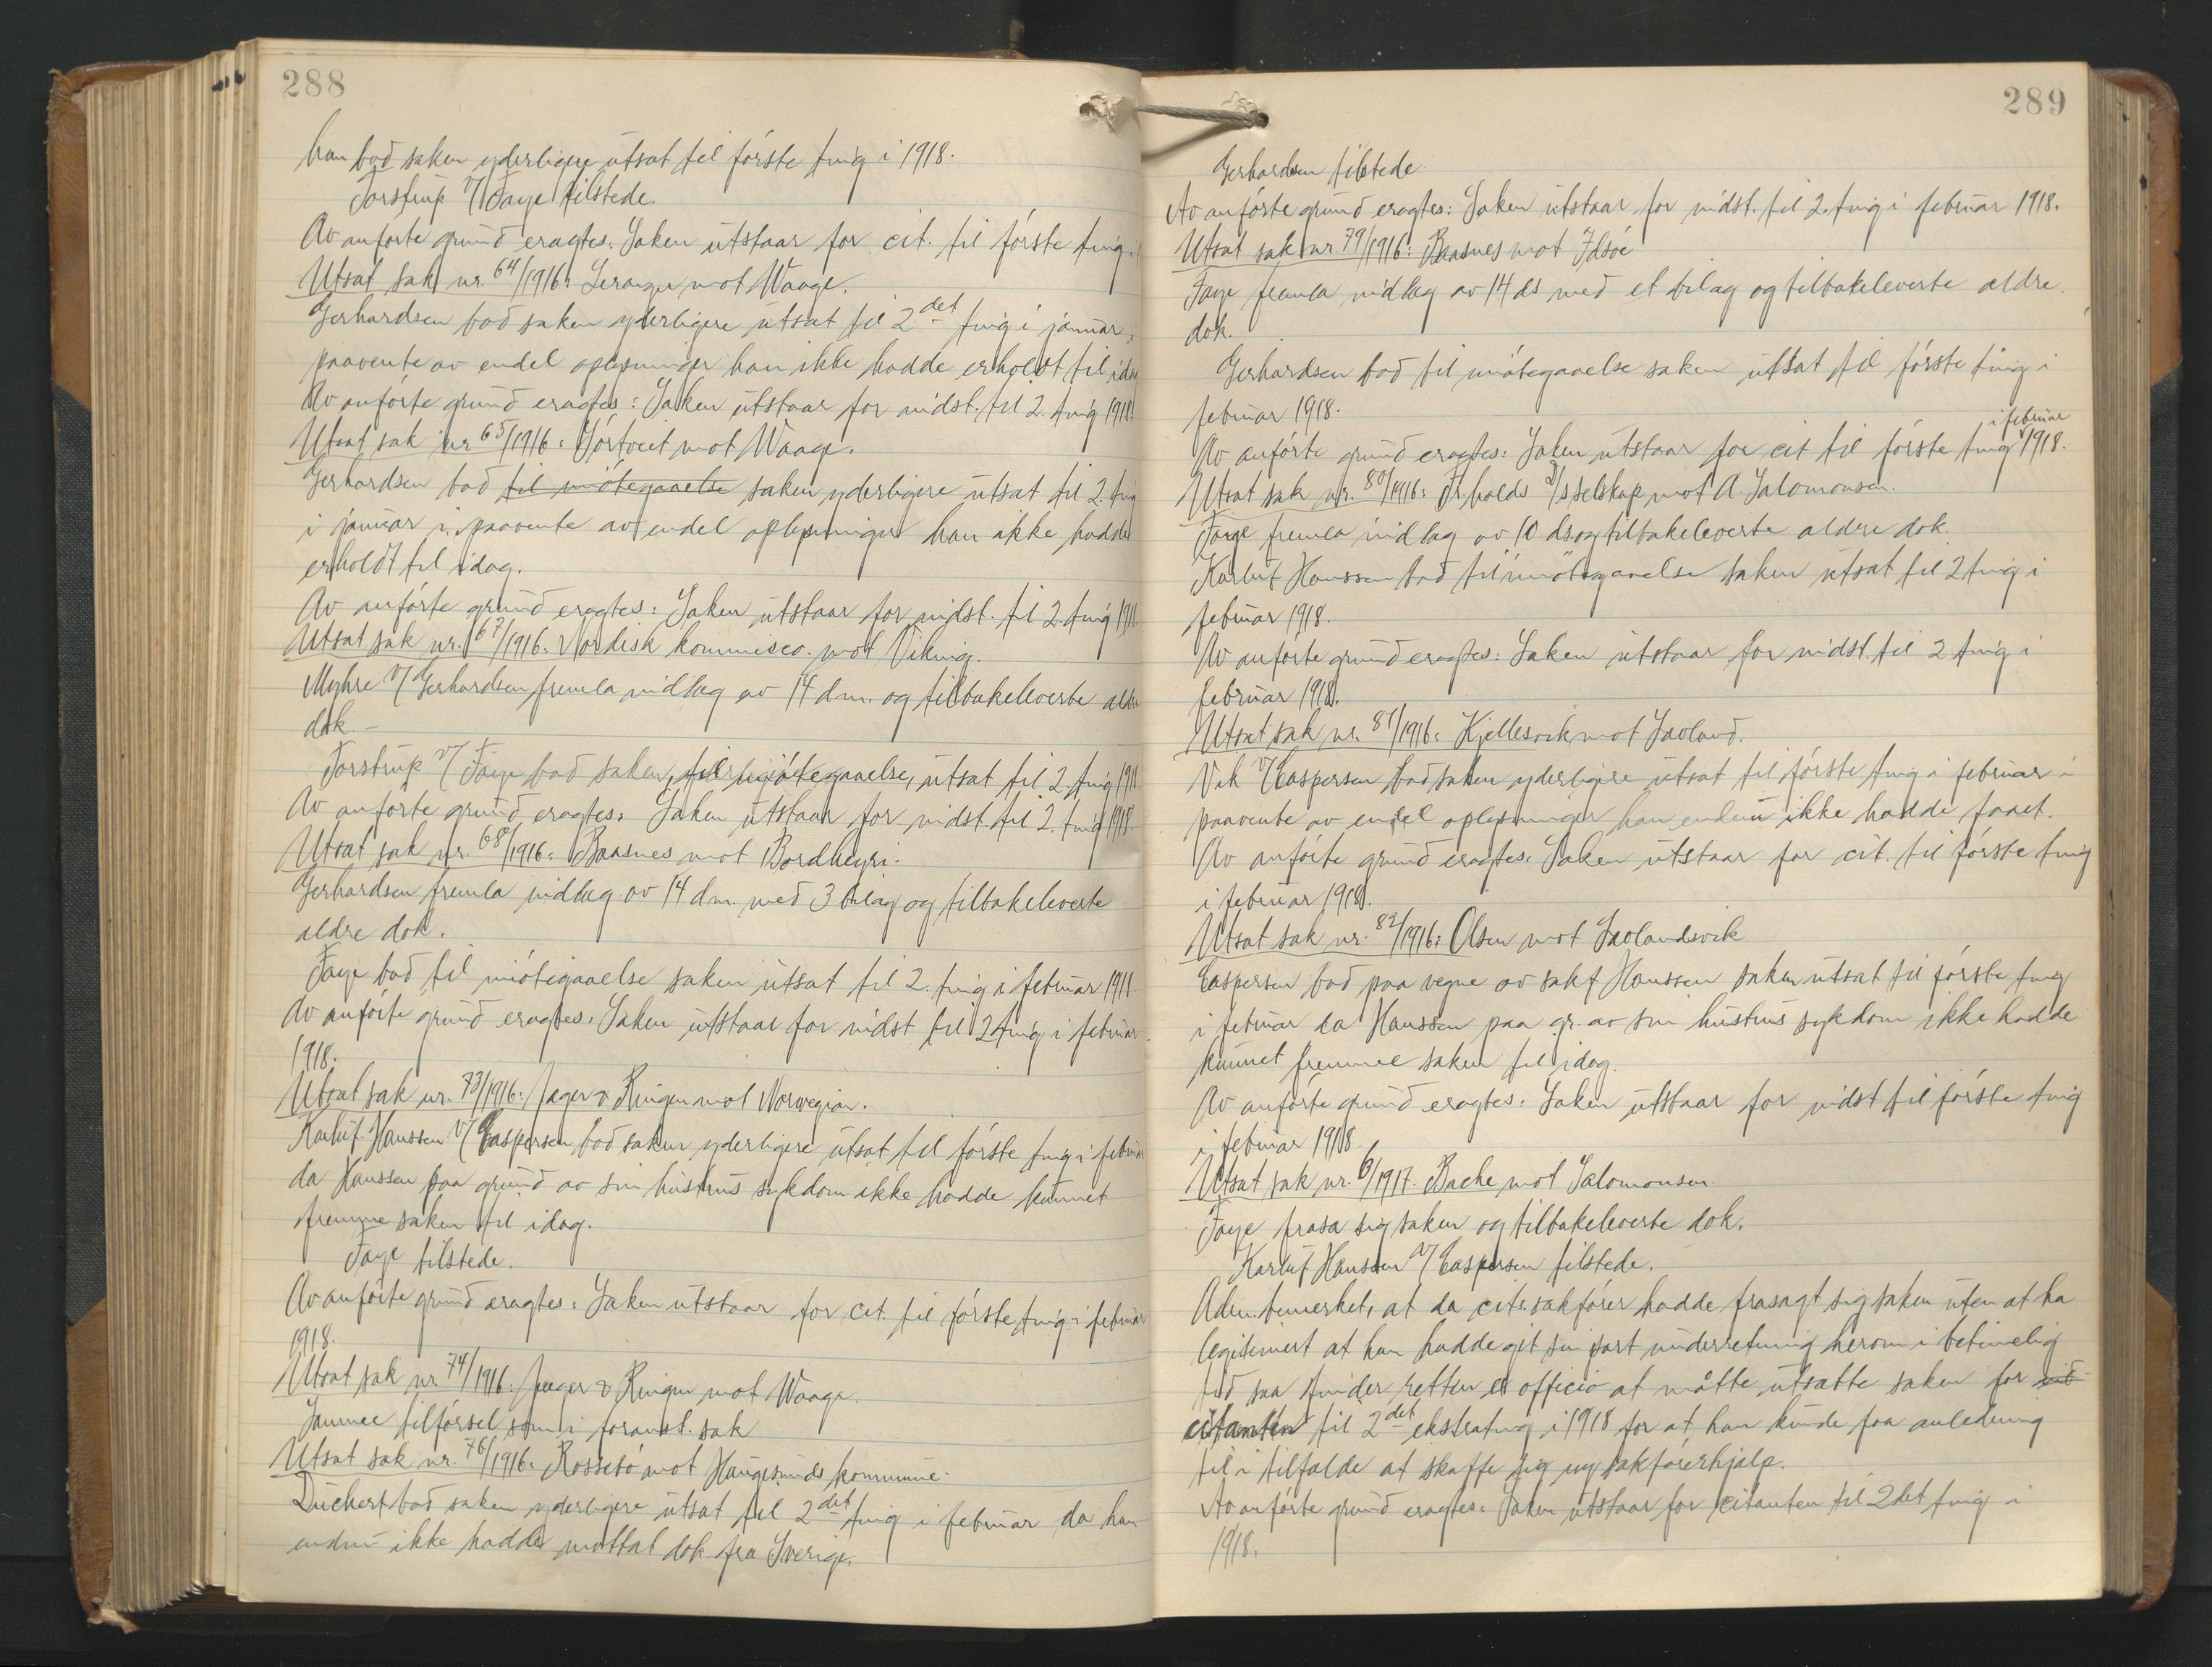 288
han bad saken yderligere utsat til første ting i 1918.
Torstrup v/ Faye tilstede.
Av anførte grund eragtes: Saken utstaar for cit. til første ting
Utsat sak nr. 64/1916: Leranger mot Waage.
Gerhardsen bad saken yderligere utsat til 2det ting i januar,
paavente av endel oplysninger han ikke hadde erholdt til idag
Av anførte grund eragtes: Saken utstaar for indst. til 2. ting 1918.
Utsat sak nr 65/1916: Hørtveit mot Waage.
Gerhardsen bad til imøtegaaelse saken yderligere utsat til 2. ting
i januar i paavente av endel oplysninger han ikke hadde
erholdt til idag.
Av anførte grund eragtes: Saken utstaar for indst. til 2. ting 1918
Utsat sak nr. 67/1916. Nordisk kommisco. mot Viking.
Myhre v/ Gerhardsen fremla indlæg av 14 dm. og tilbakeleverte ældre
dok. –
Torstrup v/ Faye bad saken, til imøtegaaelse, utsat til 2. ting 1918.
Av anførte grund eragtes: Saken utstaar for indst. til 2. ting 1918.
Utsat sak nr. 68/1916: Baasnes mot Bordheyri.
Gerhardsen fremla indlæg av 14 dm. med 3 bilag og tilbakeleverte
ældre dok.
Faye bad til imøtegaaelse saken utsat til 2. ting i februar 1918
Av anførte grund eragtes: Saken utstaar for indst til 2 ting i februar
1918.
Utsat sak nr. 73/1916: Jæger & Ringen mot Norwegian.
Karluf Hanssen v/ Caspersen bad saken yderligere utsat til første ting i februar
da Hanssen paa grund av sin hustrus sykdom ikke hadde kunnet
fremme saken til idag.
Faye tilstede.
Av anførte grund eragtes: Saken utstaar for cit. til første ting i februar
1918.
Utsat sak nr 74/1916: Jæger & Ringen mot Waage.
Samme tilførsel som i foranst. sak
Utsat sak nr. 76/1916: Rossebø mot Haugesunds kommune.
Duckert bad saken yderligere utsat til 2det ting i februar da han
endnu ikke hadde mottat dok fra Sverige.
289
Gerhardsen tilstede.
Av anførte grund eragtes: Saken utstaar for indst. til 2. ting i februar 1918.
Utsat sak nr 79/1916: Baasnes mot Ilsøe
Faye fremla indlæg av 14 ds med et bilag og tilbakeleverte ældre
dok.
Gerhardsen bad til imøtegaaelse saken utsat til første ting i
februar 1918.
Av anførte grund eragtes: Saken utstaar for cit til første ting i februar 1918.
Utsat sak nr. 80/1916: Fr.halds A/sselskap mot A. Salomonsen.
Faye fremla indlæg av 10 ds og tilbakeleverte ældre dok.
Karluf Hanssen bad til imøtegaaelse saken utsat til 2 ting i
februar 1918.
Av anførte grund eragtes: Saken utstaar for indst. til 2 ting i
februar 1918.
Utsat sak nr. 81/1916: Kjellesvik mot Søvland.
Vik v/ Caspersen bad saken yderligere utsat til første ting i februar i
paavente av endel oplysninger han endnu ikke hadde faaet.
Av anførte grund eragtes: Saken utstaar for cit. til første ting
i februar 1918.
Utsat sak nr. 82/1916: Olsen mot Søvlandsvik
Caspersen bad paa vegne av sakf Hanssen saken utsat til første ting
i februar da Hanssen paa gr. av sin hustrus sykdom ikke hadde
kunnet fremme saken til idag.
Av anførte grund eragtes: Saken utstaar for indst til første ting
i februar 1918
Utsat sak nr. 6/1917. Backe mot Salomonsen.
Faye frasa sig saken og tilbakeleverte dok.
Karluf Hanssen v/ Caspersen tilstede.
Adm. bemerket, at da cits sakfører hadde frasagt sig saken uten at ha
legitimert at han hadde git sin part underretning herom i betimelig
tid saa finder retten ex officio at måtte utsætte saken for
citanten til 2det ekstrating i 1918 for at han kunde faa anledning
til i tilfælde at skaffe sig ny sakførerhjælp.
Av anførte grund eragtes: Saken utstaar for citanten til 2det ting i
1918.